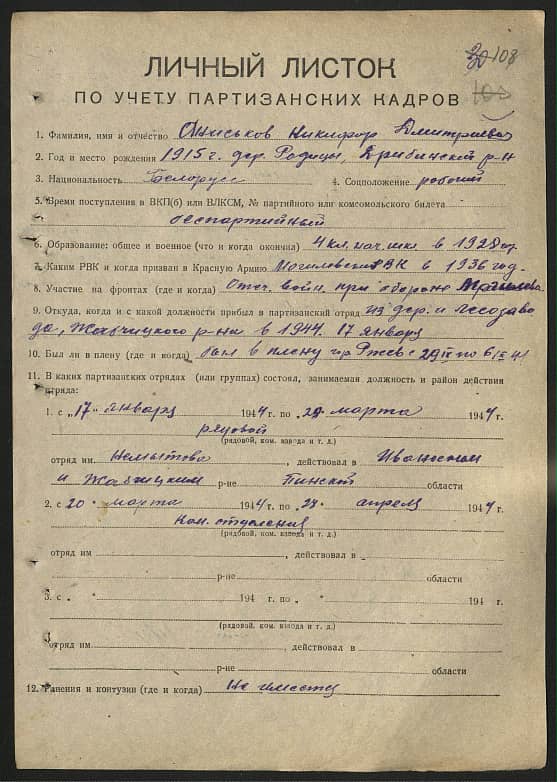 30 108
ЛИЧНЫЙ ЛИСТОК
ПО УЧЕТУ ПАРТИЗАНСКИХ КАДРОВ
1. Фамилия, имя и отчество Аниськов Никифор Дмитриевич
2. Год и место рождения 1915 г. дер. Родицы, Дрибинский р-н
3. Национальность Белорусс 4. Соцположение рабочий
5. Время поступления в ВКП(б) или ВЛКСМ, № партийного или комсомольского билета
беспартийный
6. Образование: общее и военное (что и когда окончил) 4 кл. нач. шк. в 1928 г.
7. Каким РВК и когда призван в Красную Армию Могилевским РВК в 1936 год.
8. Участие на фронтах (где и когда) Отеч. войн. при обороне Могилева
9. Откуда, когда и с какой должности прибыл в партизанский отряд из дер. и лесозаво
да, Жабчицкого р-на в 1944. 17 января
10. Был ли в плену (где и когда) был в плену гр. Ржев с
11. В каких партизанских отрядах (или группах) состоял, занимаемая должность и район действия
отряда:
1. с „17" января 1944 г. по 20 марта 1944 г.
рядовой
(рядовой, ком. взвода и т. д.)
отряд им. Немытова, действовал в Иванским
и Жабчицким р-не Пинской области
2. с 20 марта 1944 г. по 28 апреля 1944 г.
Ком. отделения
(рядовой, ком. взвода и т. д.)
отряд им , действовал в
р-не области
3. с „ " 194 г. по „ " 194 г.
(рядовой, ком. взвода и т. д.)
отряд им. , действовал в
р-не области
12. Ранения и контузии (где и когда) Не имеет